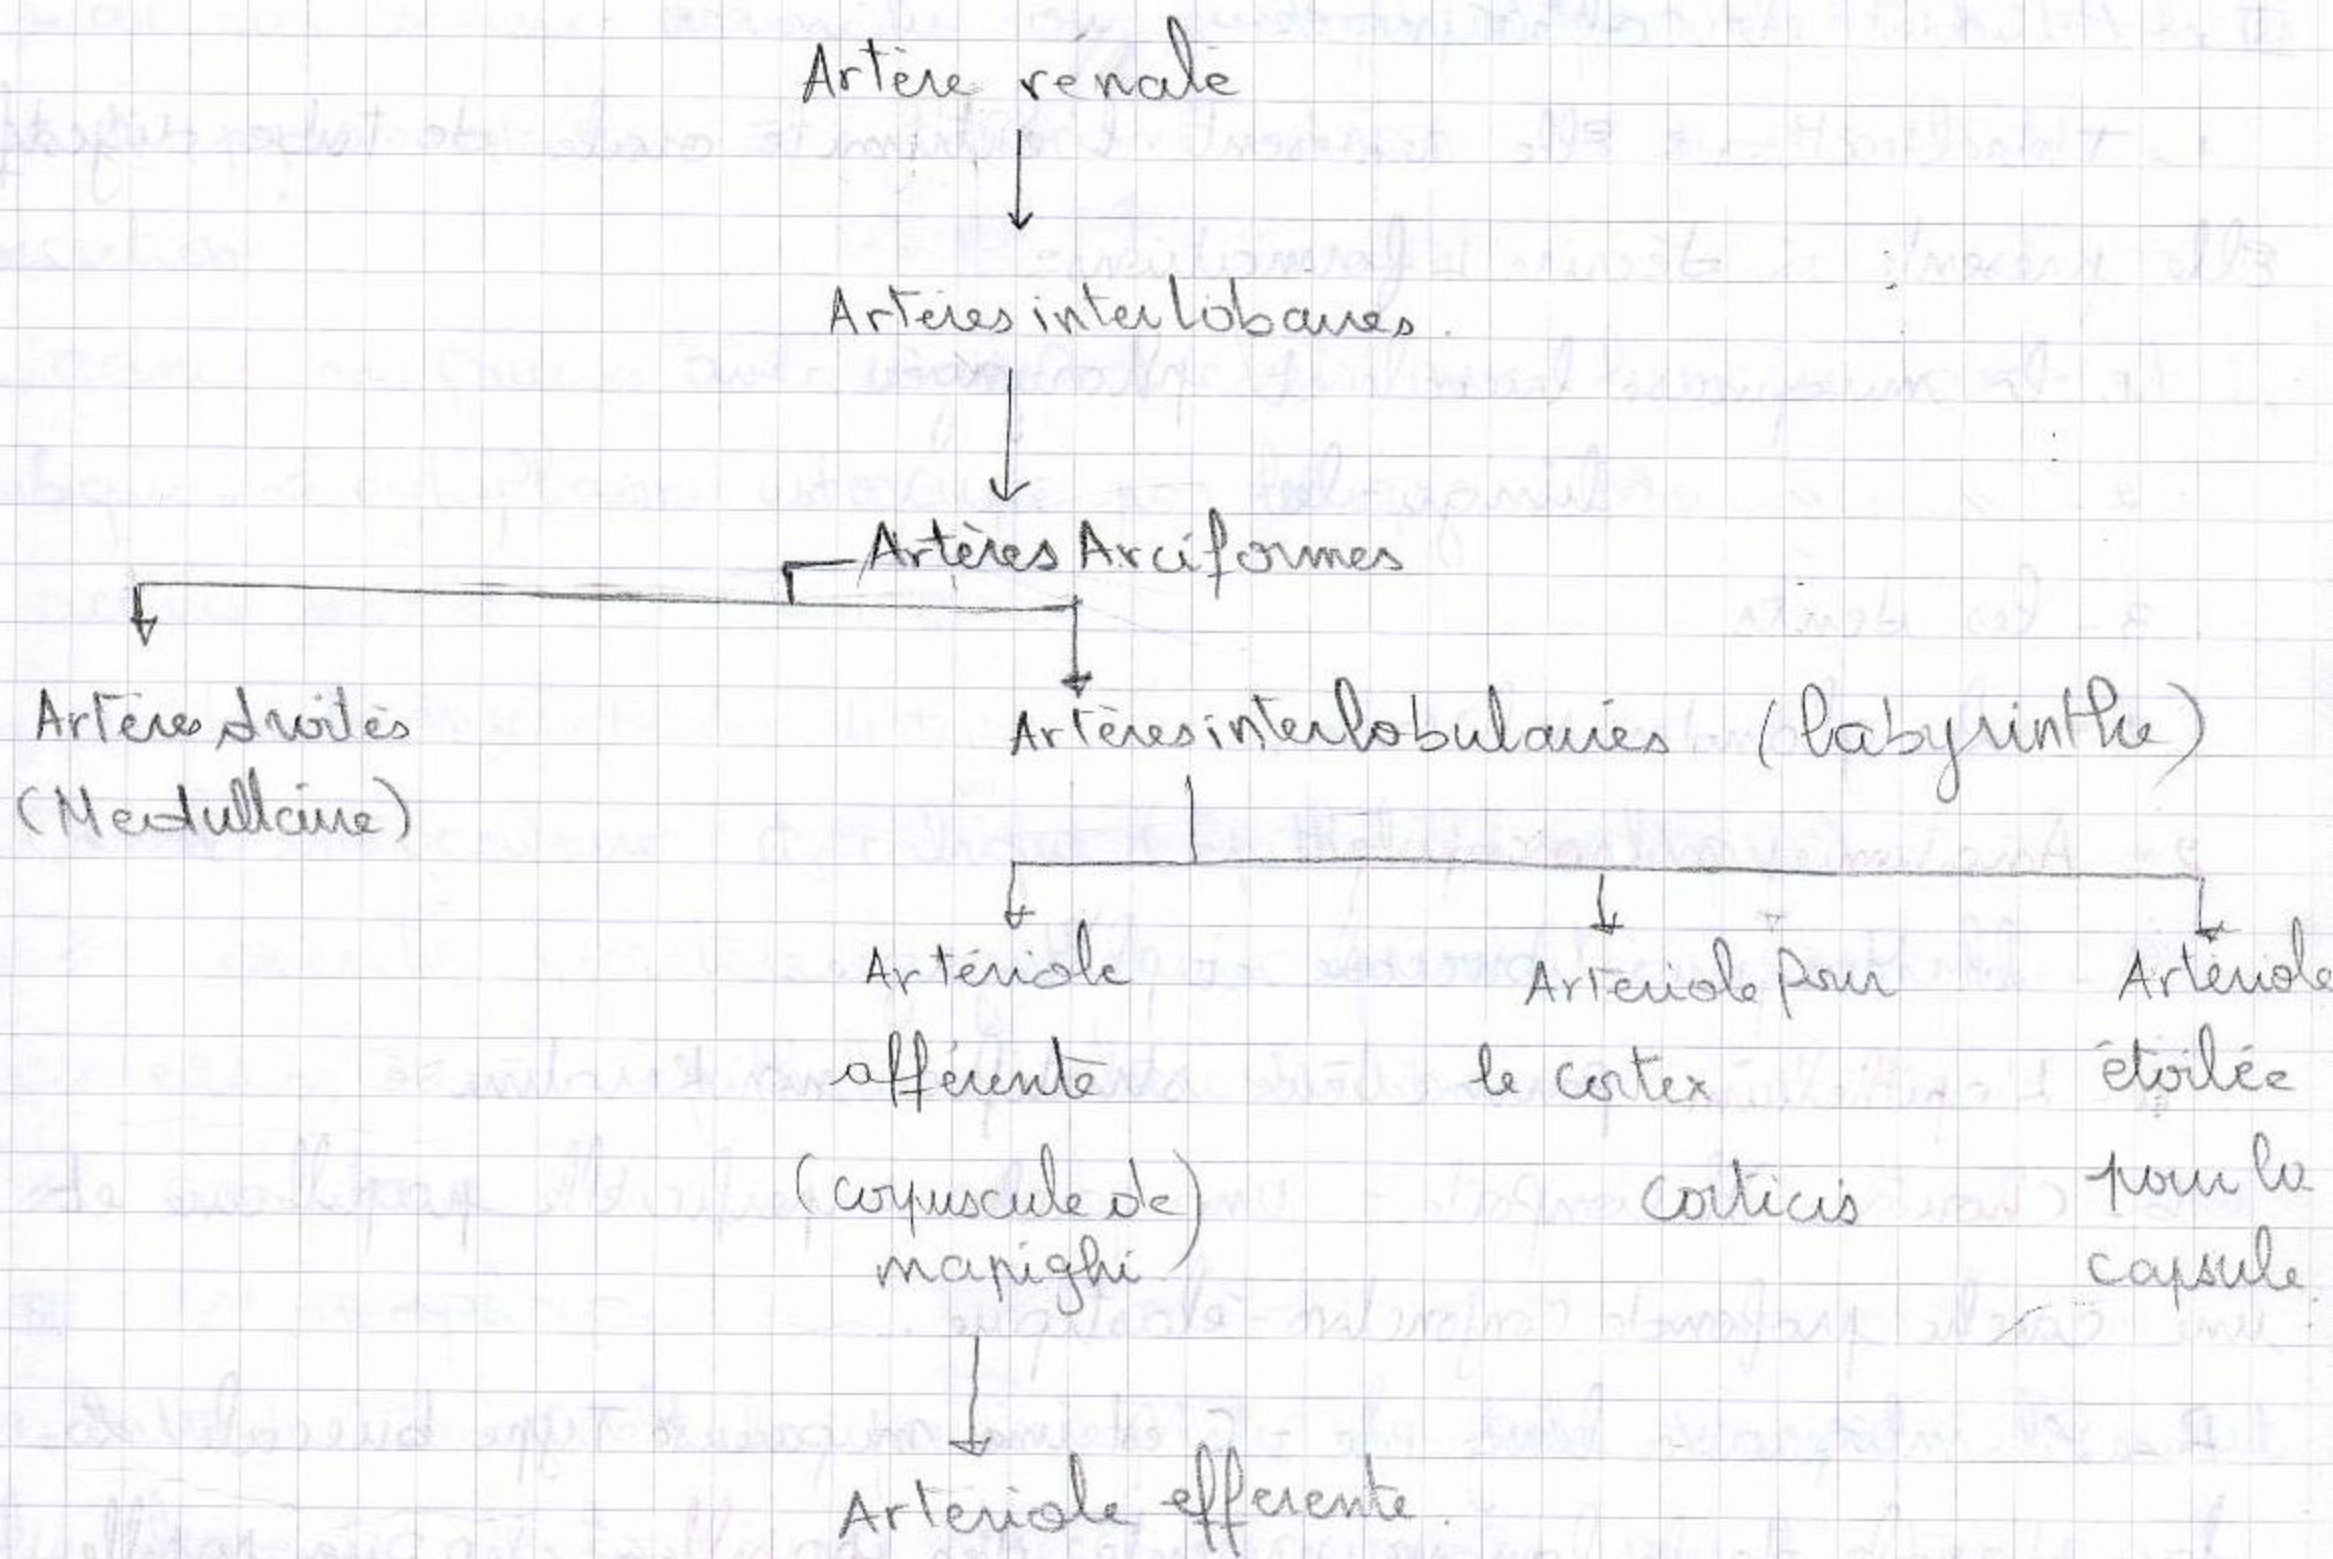 Artère rénale
Artères interlobaires.
Artères Arciformes
Artères droites
(Medullaire)
Artères interlobulaires (labyrinthe)
Artériole
afférente
(corpuscule de)
mapighi
Artériole pour
le cortex
corticis
Artériole
étoilée
pour la
capsule.
Artériole efferente.